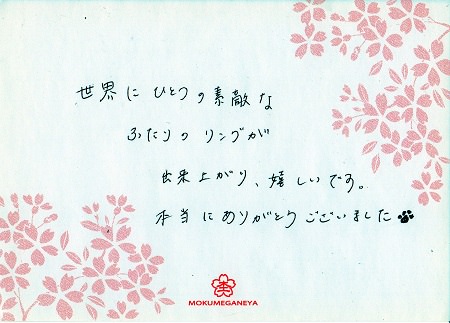 世界にひとつの素敵な
ふたりのリングが
出来上がり、嬉しいです。
本当にありがとうございました
MOKUMEGANEYA